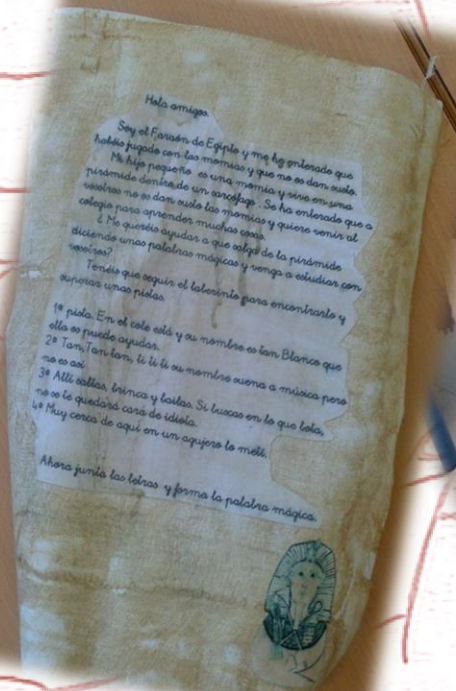 Hola amigos.
Soy el Faraón de Egipto y me he enterado que
habéis jugado con las momias y que no os dan susto.
Mi hijo pequeño es una momia y vive en una
pirámide dentro de un sarcófago. Se ha enterado que a
vosotros no os dan susto las momias y quiere venir al
colegio para aprender muchas cosas.
¿ Me queréis ayudar a que salga de la pirámide
diciendo unas palabras mágicas y venga a estudiar con
vosotros?
Tenéis que seguir el laberinto para encontrarlo y
superar unas pistas.
1ª pista. En el cole está y su nombre es tan Blanco que
ella os puede ayudar.
2ª Tan, Tan tan, ti ti ti su nombre suena a música pero
no es así
3ª Allí saltas, brincas y bailas. Si buscas en lo que bota,
no se te quedará cara de idiota.
4ª Muy cerca de aquí en un agujero lo metí.
Ahora junta las letras y forma la palabra mágica.